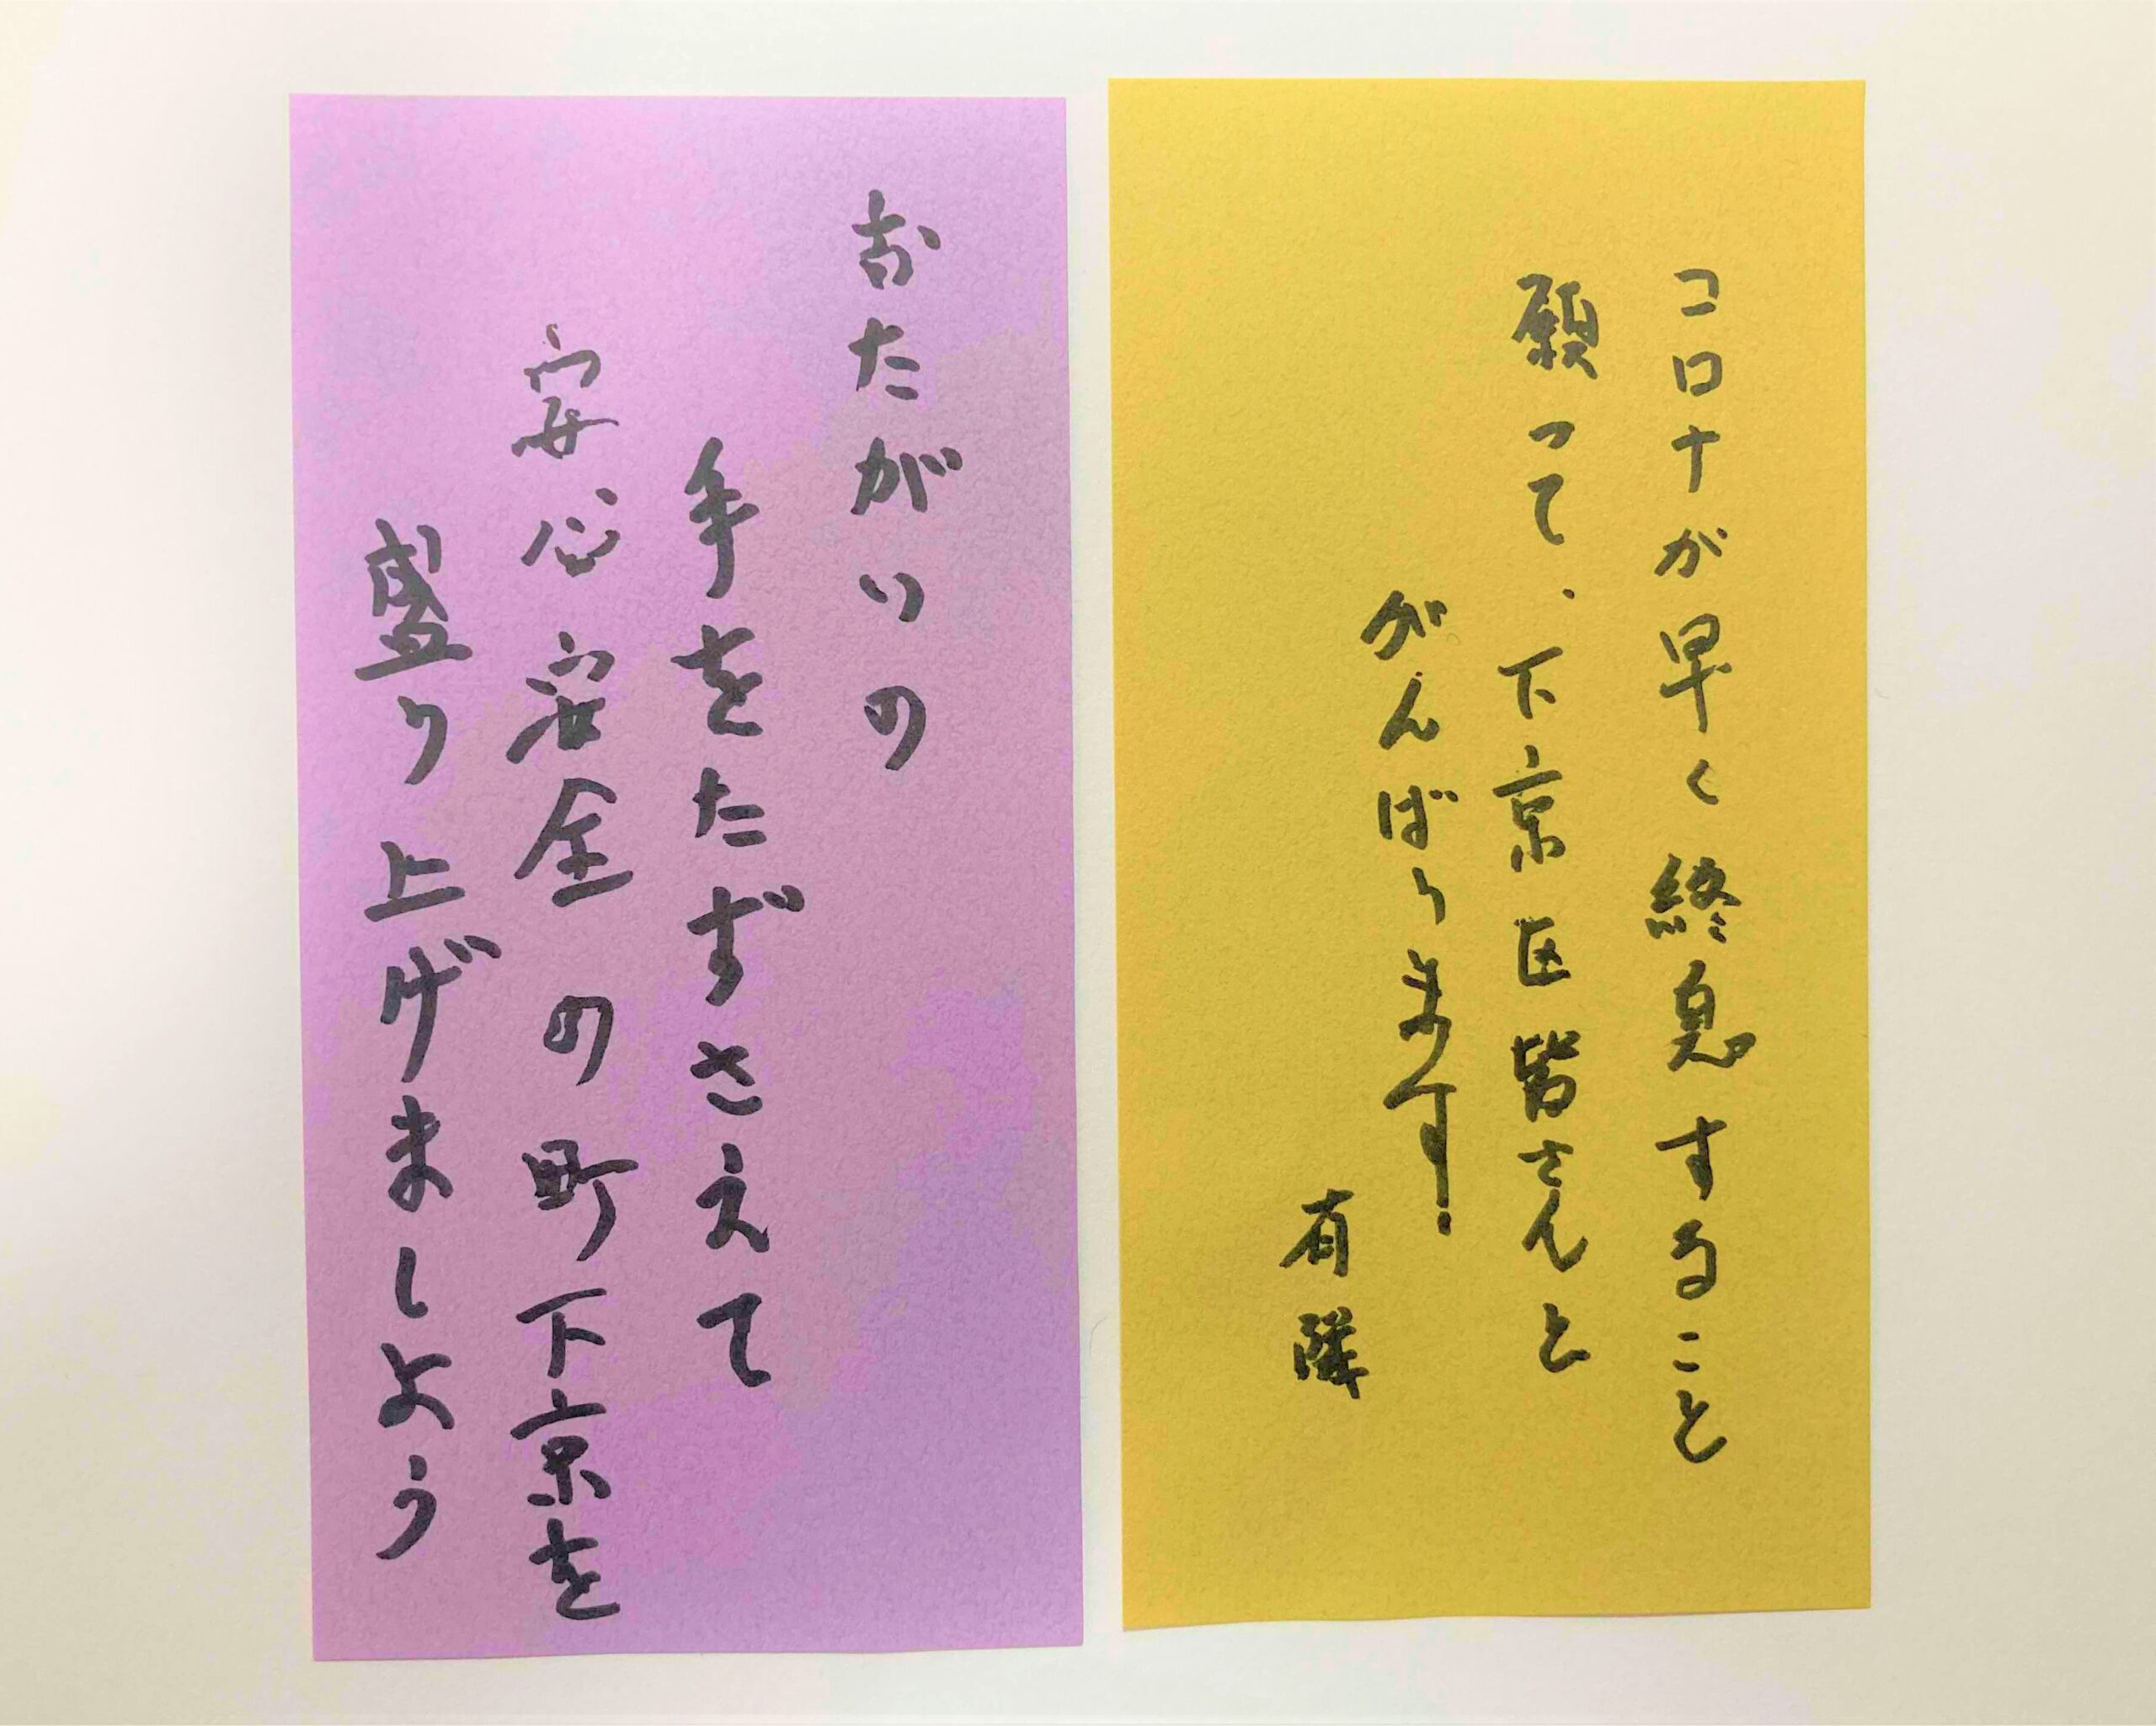 コロナが早く終息すること
願って、下京区皆さんと
がんばります!
有隣
おたがいの
手をたずさえて
安心安全の町下京を
盛り上げましよう